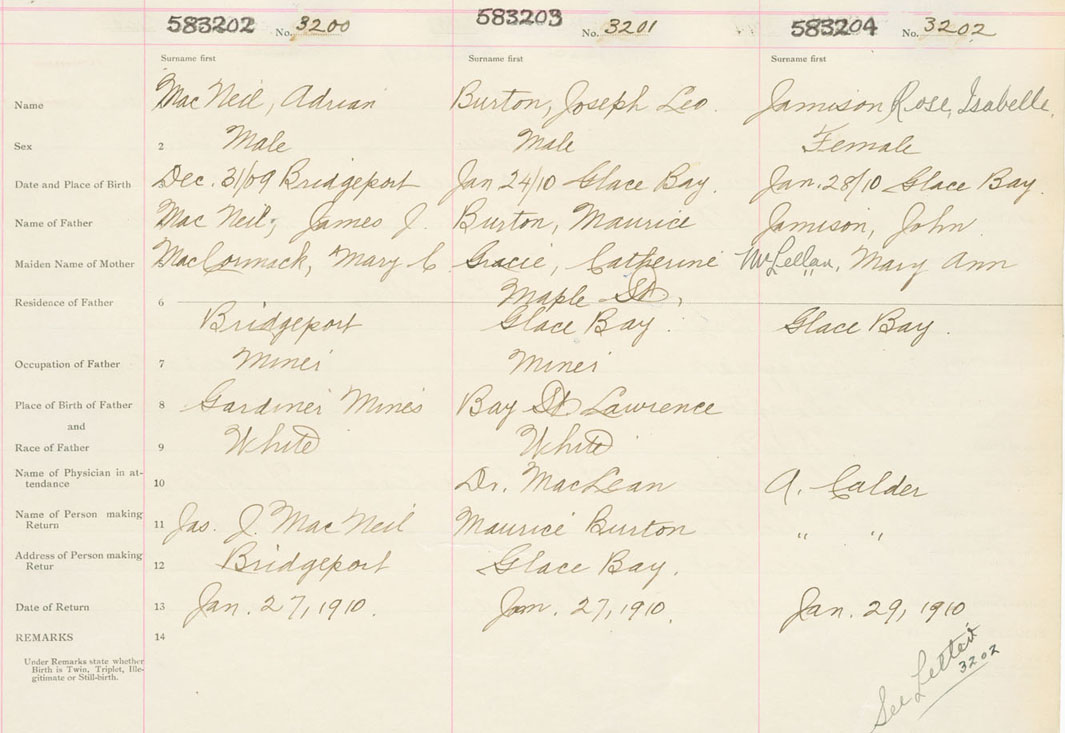 583202 No. 3200 583203 No. 3201 583204 No. 3202
Surname first Surname first Surname first
Name MacNeil, Adrian Burton, Joseph Leo. Jamison Rose, Isabelle.
Sex 2 Male Male Female
Date and Place of Birth Dec. 31/09 Bridgeport Jan 24/10 Glace Bay. Jan. 28/10 Glace Bay.
Name of Father MacNeil, James J. Burton, Maurice Jamison, John
Maiden Name of Mother MacCormack, Mary C Gracie, Catherine McLellan, Mary Ann
Maple St,
Residence of Father 6 Bridgeport Glace Bay. Glace Bay.
Occupation of Father 7 Miner Miner
Place of Birth of Father 8 Gardiner Mines Bay St Lawrence
and
Race of Father 9 White White
Name of Physician in at-
tendance 10 Dr. MacLean A. Calder
Name of Person making
Return 11 Jas. J. MacNeil Maurice Burton " "
Address of Person making
Retur 12 Bridgeport Glace Bay.
Date of Return 13 Jan. 27, 1910. Jan. 27, 1910. Jan. 29, 1910
REMARKS 14
Under Remarks state whether
Birth is Twin, Triplet, Ille-
gitimate or Still-birth.
See Letter
3202